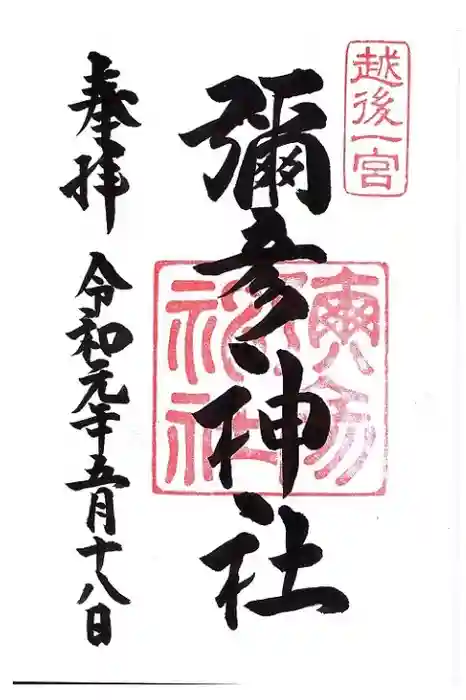 越後一宮
彌彦神社
奉拝 令和元年五月十八日